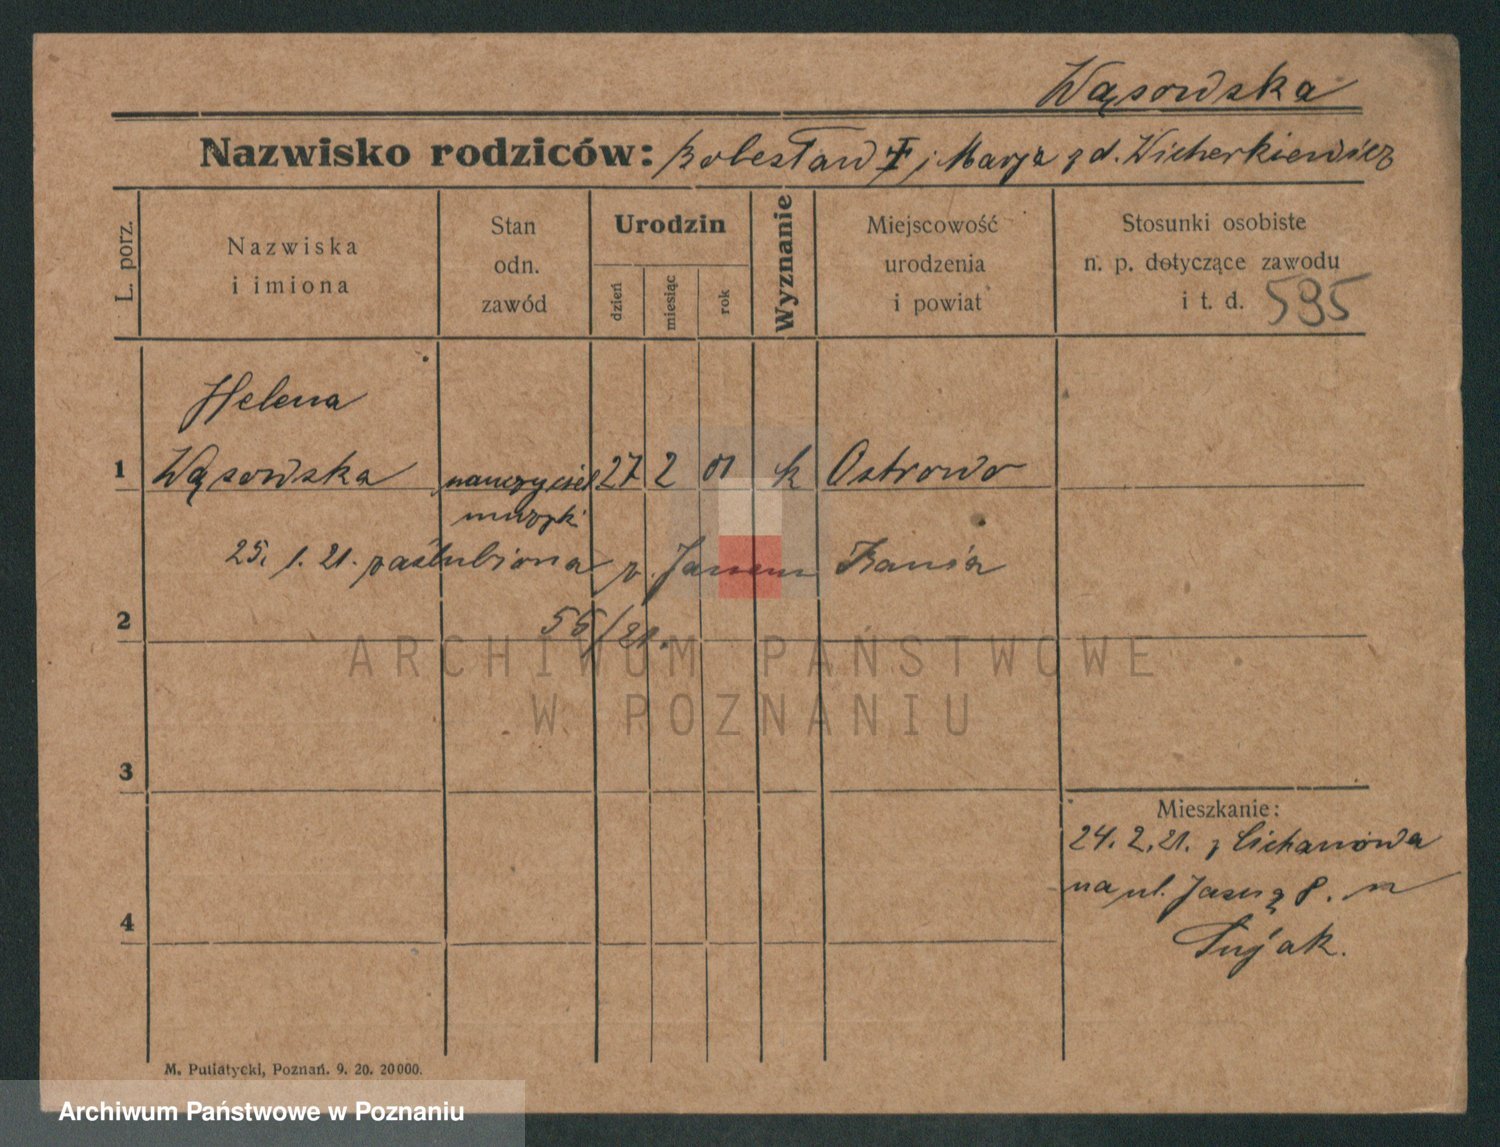 Wąsowska
Nazwisko rodziców: Bolesław † i Marja z d. Wicherkiewicz
L. porz.
Nazwiska
i imiona
Stan
odn.
zawód
Urodzin
dzień
miesiąc
rok
Wyznanie
Miejscowość
urodzenia
i powiat
Stosunki osobiste
n. p. dotyczące zawodu
i t. d. 595
Helena
1 Wąsowska nauczyciel 27 2 01 k Ostrowo
muzyki
25. 1. 21. zaślubiona z. Janem Kania
2 55/21.
ARCHIWUM PAŃSTWOWE
W POZNANIU
3
Mieszkanie:
24. 2. 21. z Cichanowa
na ul. Jasną 8. n
4
M. Putiatycki, Poznań. 9. 20. 20000.
Archiwum Państwowe w Poznaniu